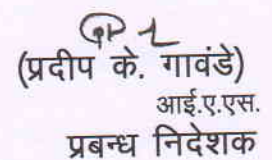 (प्रदीप के. गावंडे)
आई.ए.एस.
प्रबन्ध निदेशक